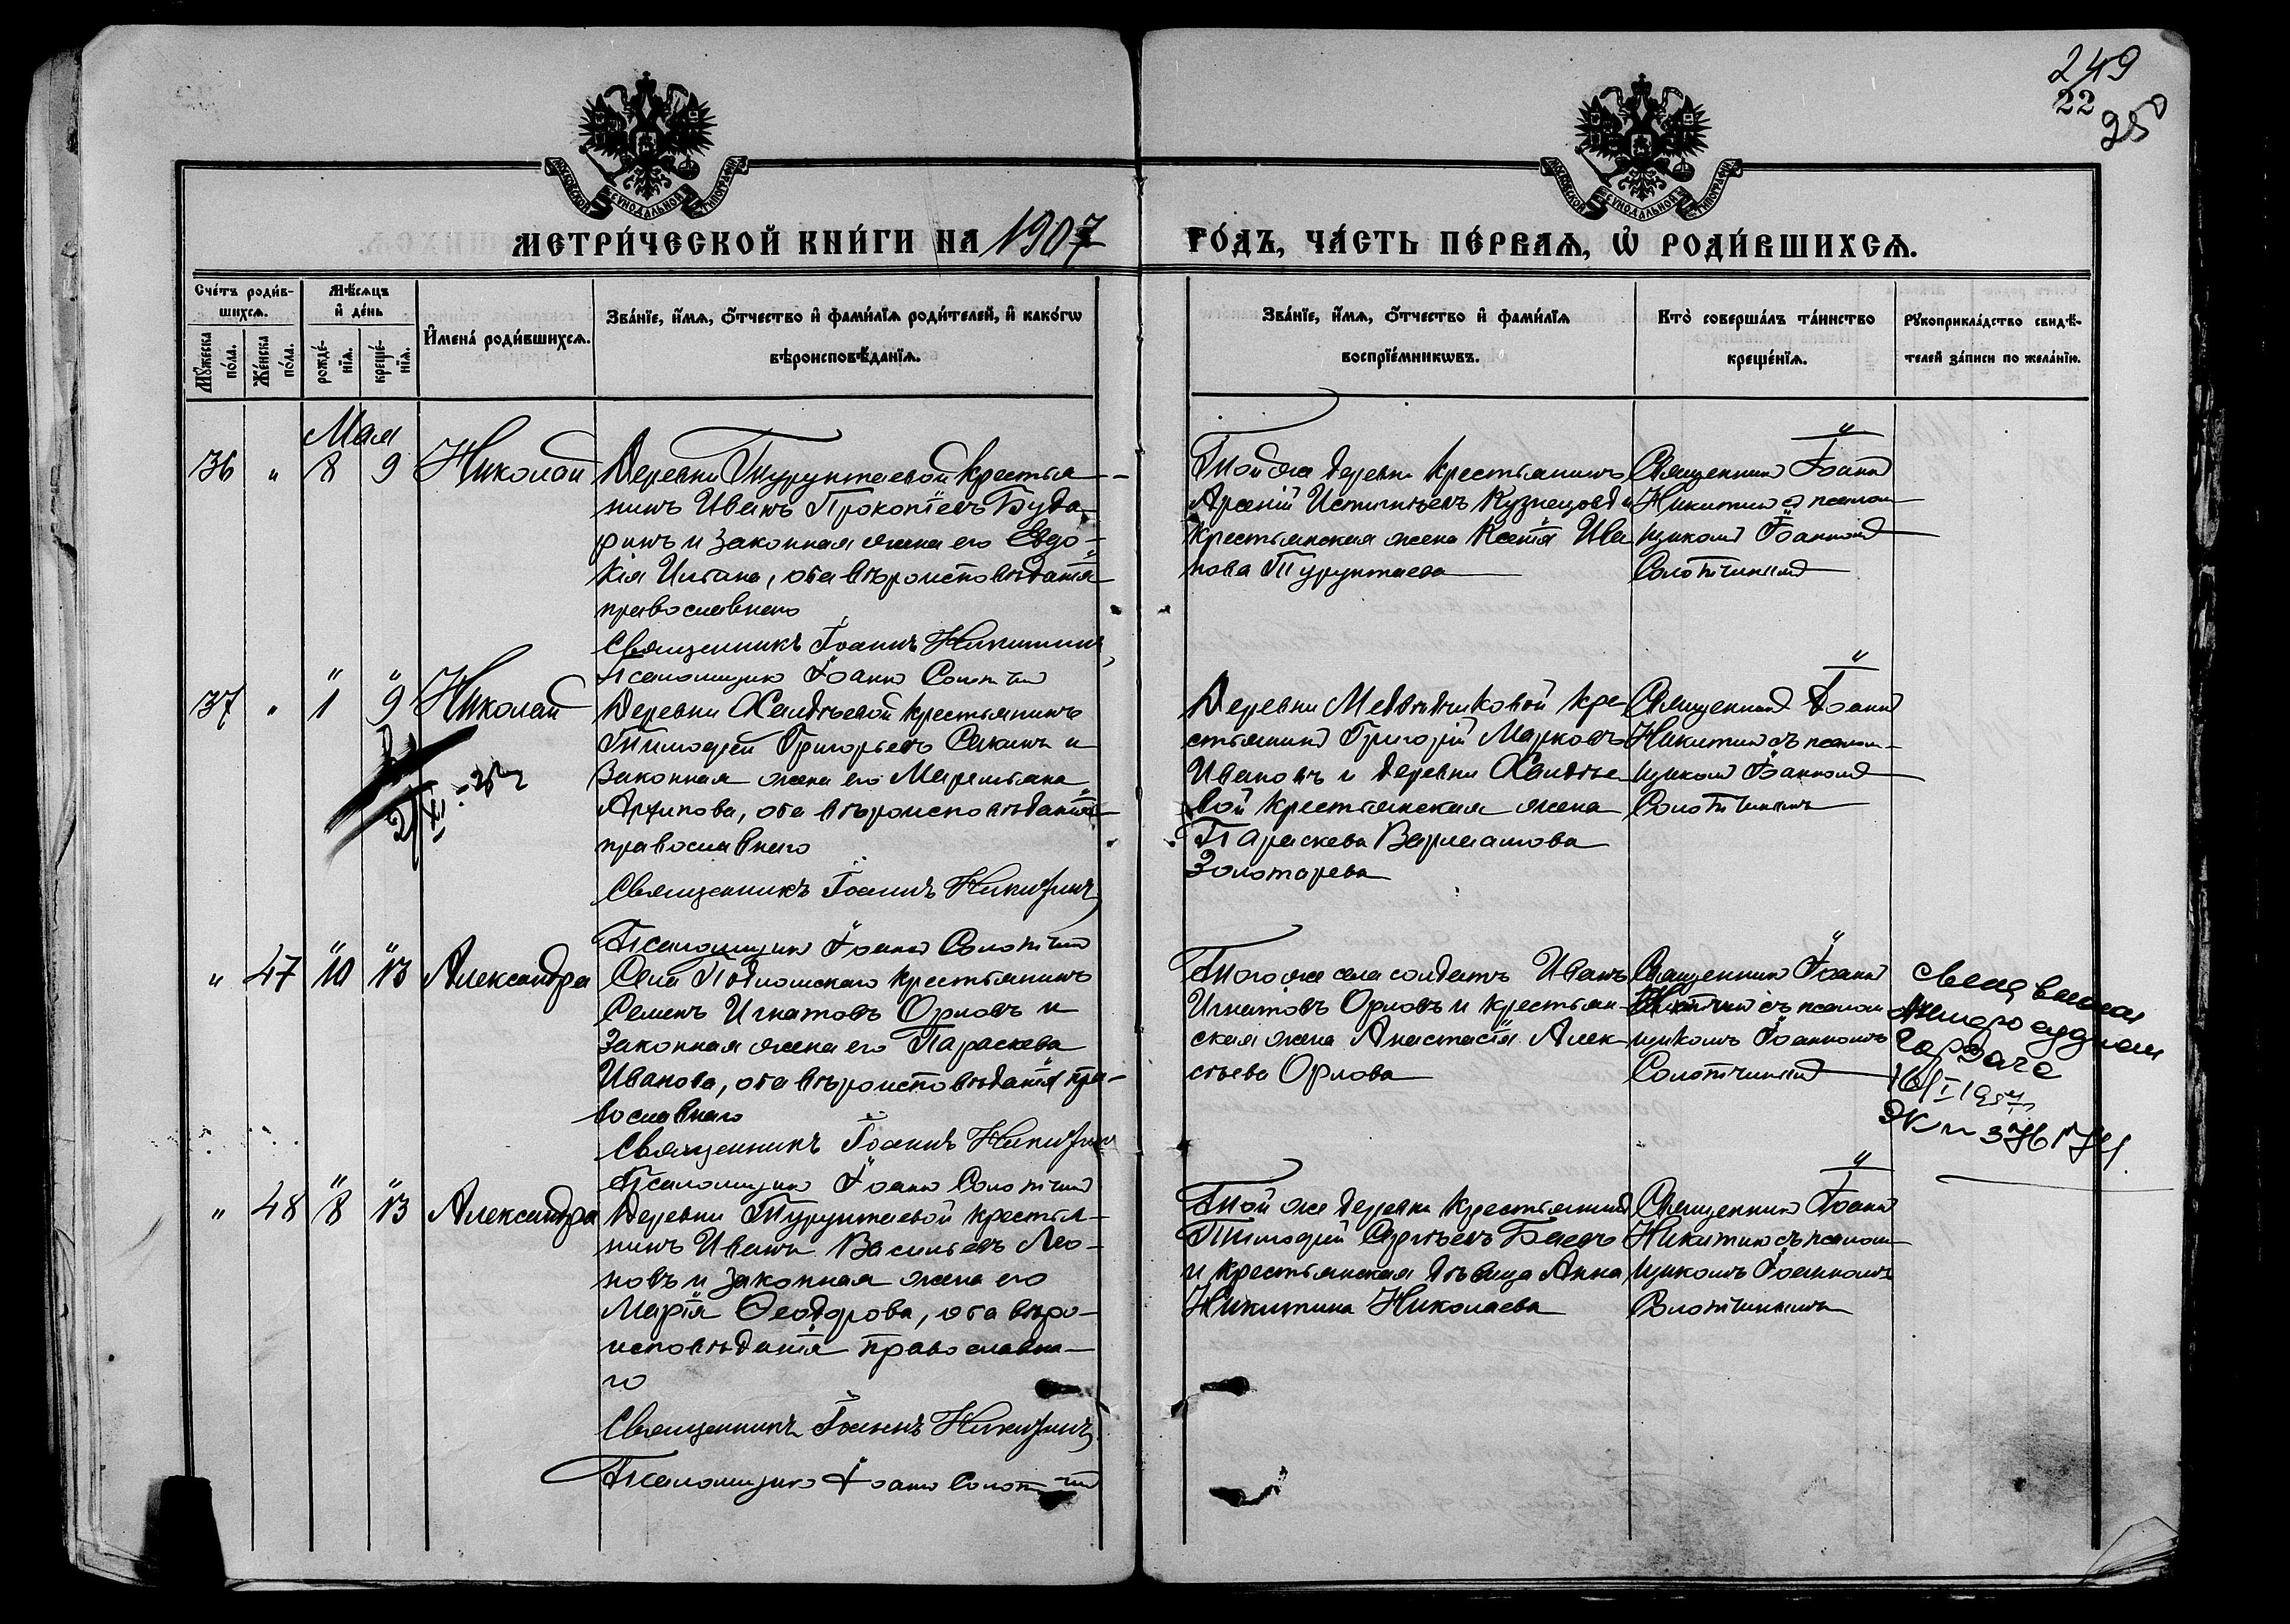 249
22
250
МОСКОВСКОЙ СѴНОДАЛЬНОЙ ТИПОГРАФІИ
МОСКОВСКОЙ СѴНОДАЛЬНОЙ ТИПОГРАФІИ
МЕТРИ́ЧЕСКОЙ КНИ́ГИ НА 1907 ГО́ДЪ, ЧА́СТЬ ПЕ́РВАѦ, Ѡ҆ РОДИ́ВШИХСѦ.
Сче́тъ роди́в-
шихсѧ.
Мꙋ́жеска по́ла.
Же́нска по́ла.
Мѣ́сѧцъ
и҆ де́нь
рожде́-
нїѧ.
креще́-
нїѧ.
И҆мена̀ роди́вшихсѧ.
Зва́нїе, и҆́мѧ, ѻ҆́тчество и҆ фами́лїѧ роди́телей, и҆ како́гѡ
вѣроисповѣ́данїѧ.
Зва́нїе, и҆́мѧ, ѻ҆́тчество и҆ фами́лїѧ
воспрїе́мникѡвъ.
Кто̀ соверша́лъ та́инство
креще́нїѧ.
Рꙋкоприкла́дство свидѣ́-
телей за́писи по жела́нїю.
Мая
36 " 8 9 Николай
Деревни Турунтаевой крестья-
нинъ Иванъ Прокопіевъ Буда-
ринъ и законная жена его Евдо-
кія Ильина, оба вѣроисповѣданія
православнаго
Священникъ Іоаннъ Никитинъ
Псаломщикъ Іоаннъ Солотчинъ
Той же деревни крестьянинъ
Арсеній Истигнѣевъ Кузнецовъ и
крестьянская жена Ксенія Ива
нова Турунтаева
Священникъ Іоаннъ
Никитинъ съ псалом-
щикомъ Іоанномъ
Солотчинымъ
37 " 1 9 Николай
Деревни Халдѣевой крестьянинъ
Тимофей Григорьевъ Санинъ и
законная жена его Маремьяна
Архипова, оба вѣроисповѣданія
православнаго
Священникъ Іоаннъ Никитинъ
Псаломщикъ Іоаннъ Солотчинъ
Деревни Медвѣдчиковой кре-
стьянинъ Григорій Марковъ
Ивановъ и деревни Халдѣе
вой крестьянская жена
Параскева Варлаамова
Золотарева
Священникъ Іоаннъ
Никитинъ съ псалом-
щикомъ Іоанномъ
Солотчинымъ
" 47 10 13 Александра
Села Подломскаго крестьянинъ
Семенъ Игнатовъ Орловъ и
законная жена его Параскева
Иванова, оба вѣроисповѣданія пра-
вославнаго
Священникъ Іоаннъ Никитинъ
Псаломщикъ Іоаннъ Солотчинъ
Того же села солдатъ Иванъ
Игнатовъ Орловъ и крестьян-
ская жена Анастасія Алек-
сѣева Орлова
Священникъ Іоаннъ
Никитинъ съ псалом-
щикомъ Іоанномъ
Солотчинымъ
" 48 8 13 Александра
Деревни Турунтаевой крестья-
нинъ Иванъ Васильевъ Лео-
новъ и законная жена его
Марія Ѳеодорова, оба вѣро-
исповѣданія православна-
го
Священникъ Іоаннъ Никитинъ
Псаломщикъ Іоаннъ Солотчинъ
Той же деревни крестьянинъ
Тимофей Сергѣевъ Баевъ
и крестьянская дѣвица Анна
Никитина Николаева
Священникъ Іоаннъ
Никитинъ съ псалом-
щикомъ Іоанномъ
Солотчинымъ